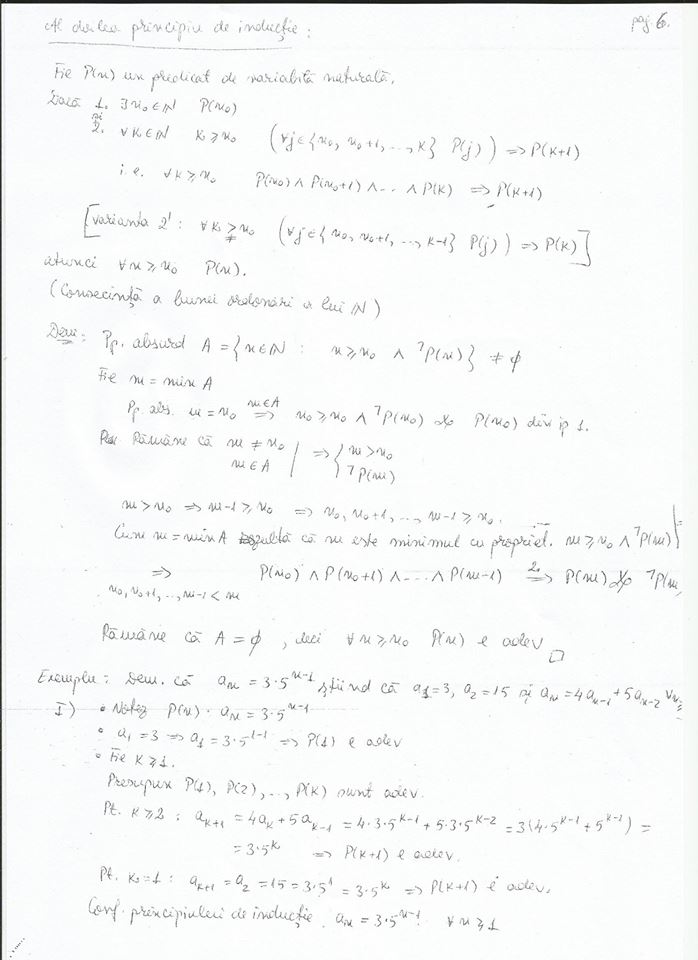 Al doilea principiu de inducție : pag. 6.
Fie P(n) un predicat de variabilă naturală.
Dacă 1. ∃ n₀ ∈ ℕ P(n₀)
și
2. ∀ k ∈ ℕ k ≥ n₀ (∀j ∈ {n₀, n₀+1, ..., k} P(j)) ⇒ P(k+1)
i.e. ∀ k ≥ n₀ P(n₀) ∧ P(n₀+1) ∧ ... ∧ P(k) ⇒ P(k+1)
[varianta 2' : ∀k ≩ n₀ (∀j ∈ {n₀, n₀+1, ..., k-1} P(j)) ⇒ P(k)]
atunci ∀ n ≥ n₀ P(n).
(Consecință a bunei ordonări a lui ℕ)
Dem : Pp. absurd A = {n ∈ ℕ : n ≥ n₀ ∧ ⌉P(n)} ≠ ∅
Fie m = min A
Pp. abs. m = n₀ ⇒ (m∈A) n₀ ≥ n₀ ∧ ⌉P(n₀) ※ P(n₀) din ip 1.
Rămâne că m ≠ n₀ | ⇒ { m > n₀
m ∈ A | ⌉P(m)
m > n₀ ⇒ m-1 ≥ n₀ ⇒ n₀, n₀+1, ..., m-1 ≥ n₀.
Cum m = min A rezultă că m este minimul cu propriet. m ≥ n₀ ∧ ⌉P(m) | ⇒
⇒ P(n₀) ∧ P(n₀+1) ∧ ... ∧ P(m-1) ⇒ (2.) P(m) ※ ⌉P(m)
n₀, n₀+1, ..., m-1 < m
Rămâne că A = ∅, deci ∀ n ≥ n₀ P(n) e adev □
Exemplu : Dem. că aₙ = 3·5ⁿ⁻¹ știind că a₁ = 3, a₂ = 15 și aₙ = 4aₙ₋₁ + 5aₙ₋₂ ∀n ≥
I) • Notez P(n) : aₙ = 3·5ⁿ⁻¹
• a₁ = 3 ⇒ a₁ = 3·5¹⁻¹ ⇒ P(1) e adev
• Fie k ≥ 1.
Presupun P(1), P(2), ..., P(k) sunt adev.
Pt. k ≥ 2 : aₖ₊₁ = 4aₖ + 5aₖ₋₁ = 4·3·5ᵏ⁻¹ + 5·3·5ᵏ⁻² = 3(4·5ᵏ⁻¹ + 5ᵏ⁻¹) =
= 3·5ᵏ ⇒ P(k+1) e adev.
Pt. k = 1 : aₖ₊₁ = a₂ = 15 = 3·5¹ = 3·5ᵏ ⇒ P(k+1) e adev.
Conf. principiului de inducție aₙ = 3·5ⁿ⁻¹ ∀ n ≥ 1